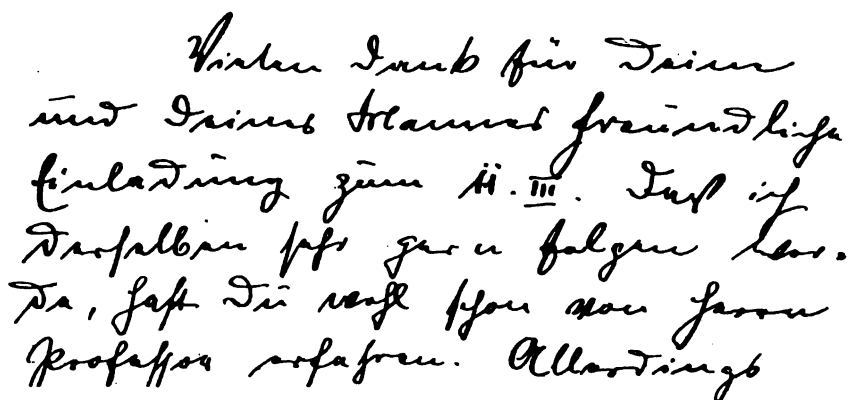 Vielen Dank für Deine
und Deines Mannes freundliche
Einladung zum 11. III. Daß ich
derselben sehr gern folgen wer-
de, hast Du wohl schon von Herrn
Professor erfahren. Allerdings